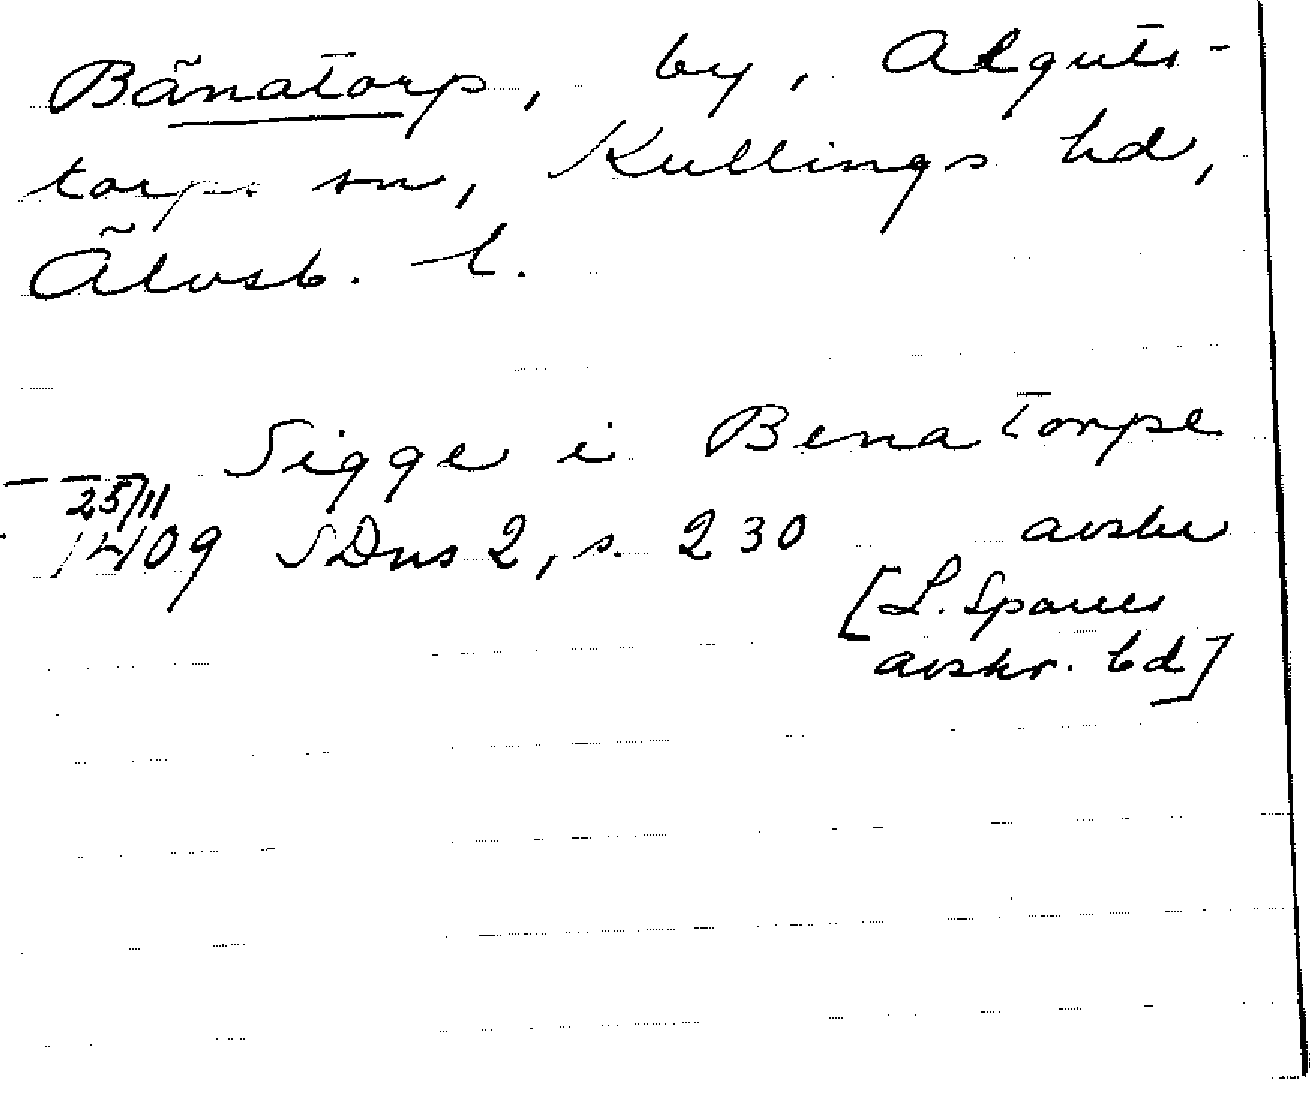 Bänatorp, by, Alguts-
torps sn, Kullings hd,
Älvsb. l.
Sigge i Benatorpe
25/11
1409 SDns 2, s. 230 avskr
[L. Sparres
avskr. bd]